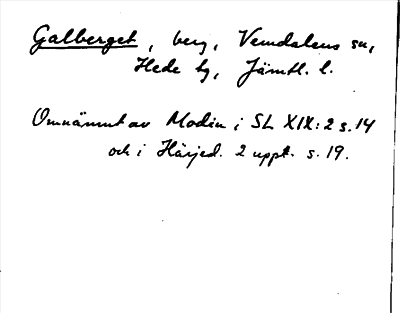 Galberget, berg, Vemdalens sn,
Hede tg, Jämtl. l.
Omnämnt av Modin i SL XIX:2 s. 14
och i Härjed. 2 uppt. s. 19.